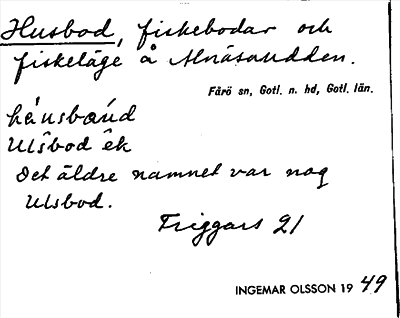 Husbod, fiskebodar och
fiskeläge å Alnäsaudden.
Fårö sn, Gotl. n. hd, Gotl. län.
Ulsbod êk
Det äldre namnet var nog
Ulsbod.
Friggars 21
INGEMAR OLSSON 19 49